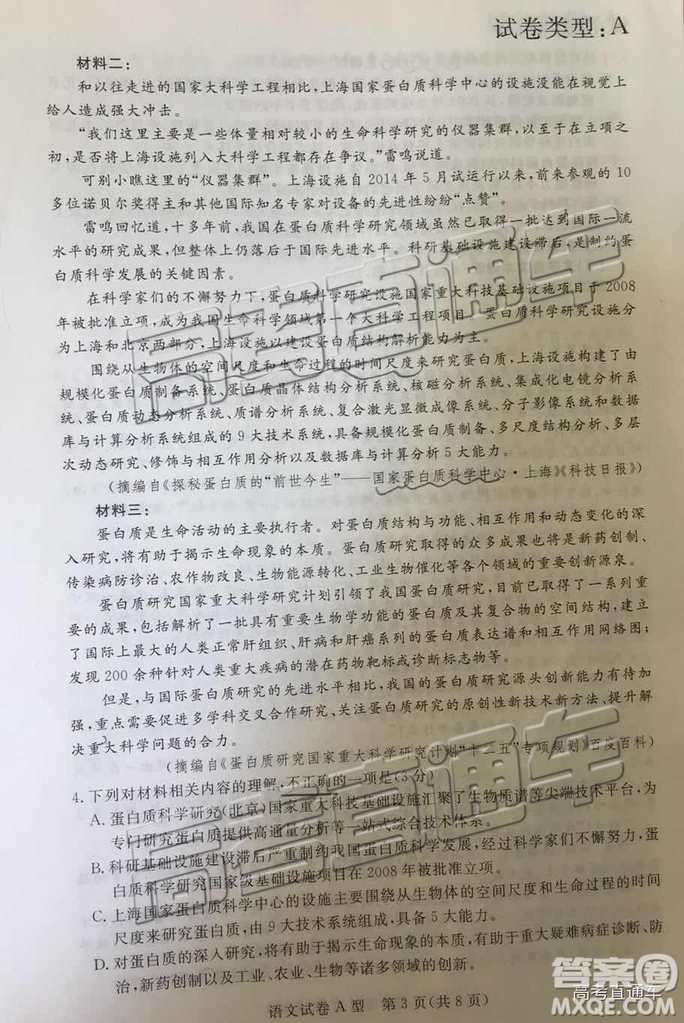 试卷类型：A
材料二：
和以往走进的国家大科学工程相比，上海国家蛋白质科学中心的设施没能在视觉上
给人造成强大冲击。
“我们这里主要是一些体量相对较小的生命科学研究的仪器集群，以至于在立项之
初，是否将上海设施列入大科学工程都存在争议。”雷鸣说道。
可别小瞧这里的“仪器集群”。上海设施自 2014 年 5 月试运行以来，前来参观的 10
多位诺贝尔奖得主和其他国际知名专家对设备的先进性纷纷“点赞”。
雷鸣回忆道，十多年前，我国在蛋白质科学研究领域虽然已取得一批达到国际一流
水平的研究成果，但整体上仍落后于国际先进水平。科研基础设施建设滞后，是制约蛋
白质科学发展的关键因素。
在科学家们的不懈努力下，蛋白质科学研究设施国家重大科技基础设施项目于 2008
年被批准立项，成为我国生命科学领域第一个大科学工程项目。蛋白质科学研究设施分
为上海和北京两部分，上海设施以建设蛋白质结构解析能力为主。
围绕从生物体的空间尺度和生命过程的时间尺度来研究蛋白质，上海设施构建了由
规模化蛋白质制备系统、蛋白质晶体结构分析系统、核磁分析系统、集成化电镜分析系
统、蛋白质动态分析系统、质谱分析系统、复合激光显微成像系统、分子影像系统和数据
库与计算分析系统组成的 9 大技术系统，具备规模化蛋白质制备、多尺度结构分析、多层
次动态研究、修饰与相互作用分析以及数据库与计算分析 5 大能力。
（摘编自《探秘蛋白质的“前世今生”——国家蛋白质科学中心·上海》《科技日报》）
材料三：
蛋白质是生命活动的主要执行者。对蛋白质结构与功能、相互作用和动态变化的深
入研究，将有助于揭示生命现象的本质。蛋白质研究取得的众多成果也将是新药创制、
传染病防诊治、农作物改良、生物能源转化、工业生物催化等各个领域的重要创新源泉。
蛋白质研究国家重大科学研究计划引领了我国蛋白质研究，目前已取得了一系列重
要的成果，包括解析了一批具有重要生物学功能的蛋白质及其复合物的空间结构，建立
了国际上最大的人类正常肝组织、肝病和肝癌系列的蛋白质表达谱和相互作用网络图；
发现 200 余种针对人类重大疾病的潜在药物靶标或诊断标志物等。
但是，与国际蛋白质研究的先进水平相比，我国的蛋白质研究源头创新能力有待加
强，重点需要促进多学科交叉合作研究、关注蛋白质研究的原创性新技术新方法，提升解
决重大科学问题的合力。
（摘编自《蛋白质研究国家重大科学研究计划“十二五”专项规划》百度百科）
4. 下列对材料相关内容的理解，不正确的一项是（3 分）
A. 蛋白质科学研究（北京）国家重大科技基础设施汇聚了生物质谱等尖端技术平台，为
专门研究蛋白质提供高通量分析等一站式综合技术体系。
B. 科研基础设施建设滞后严重制约我国蛋白质科学发展，经过科学家们不懈努力，蛋
白质科学研究国家级基础设施项目在 2008 年被批准立项。
C. 上海国家蛋白质科学中心的设施主要围绕从生物体的空间尺度和生命过程的时间
尺度来研究蛋白质，由 9 大技术系统组成，具备 5 大能力。
D. 对蛋白质的深入研究，将有助于揭示生命现象的本质，有助于重大疑难病症诊断、防
治、新药创制以及工业、农业、生物等诸多领域的创新。
语文试卷 A 型 第 3 页（共 8 页）
高考直通车
高考直通车
高考直通车
答案圈
MXQE.COM